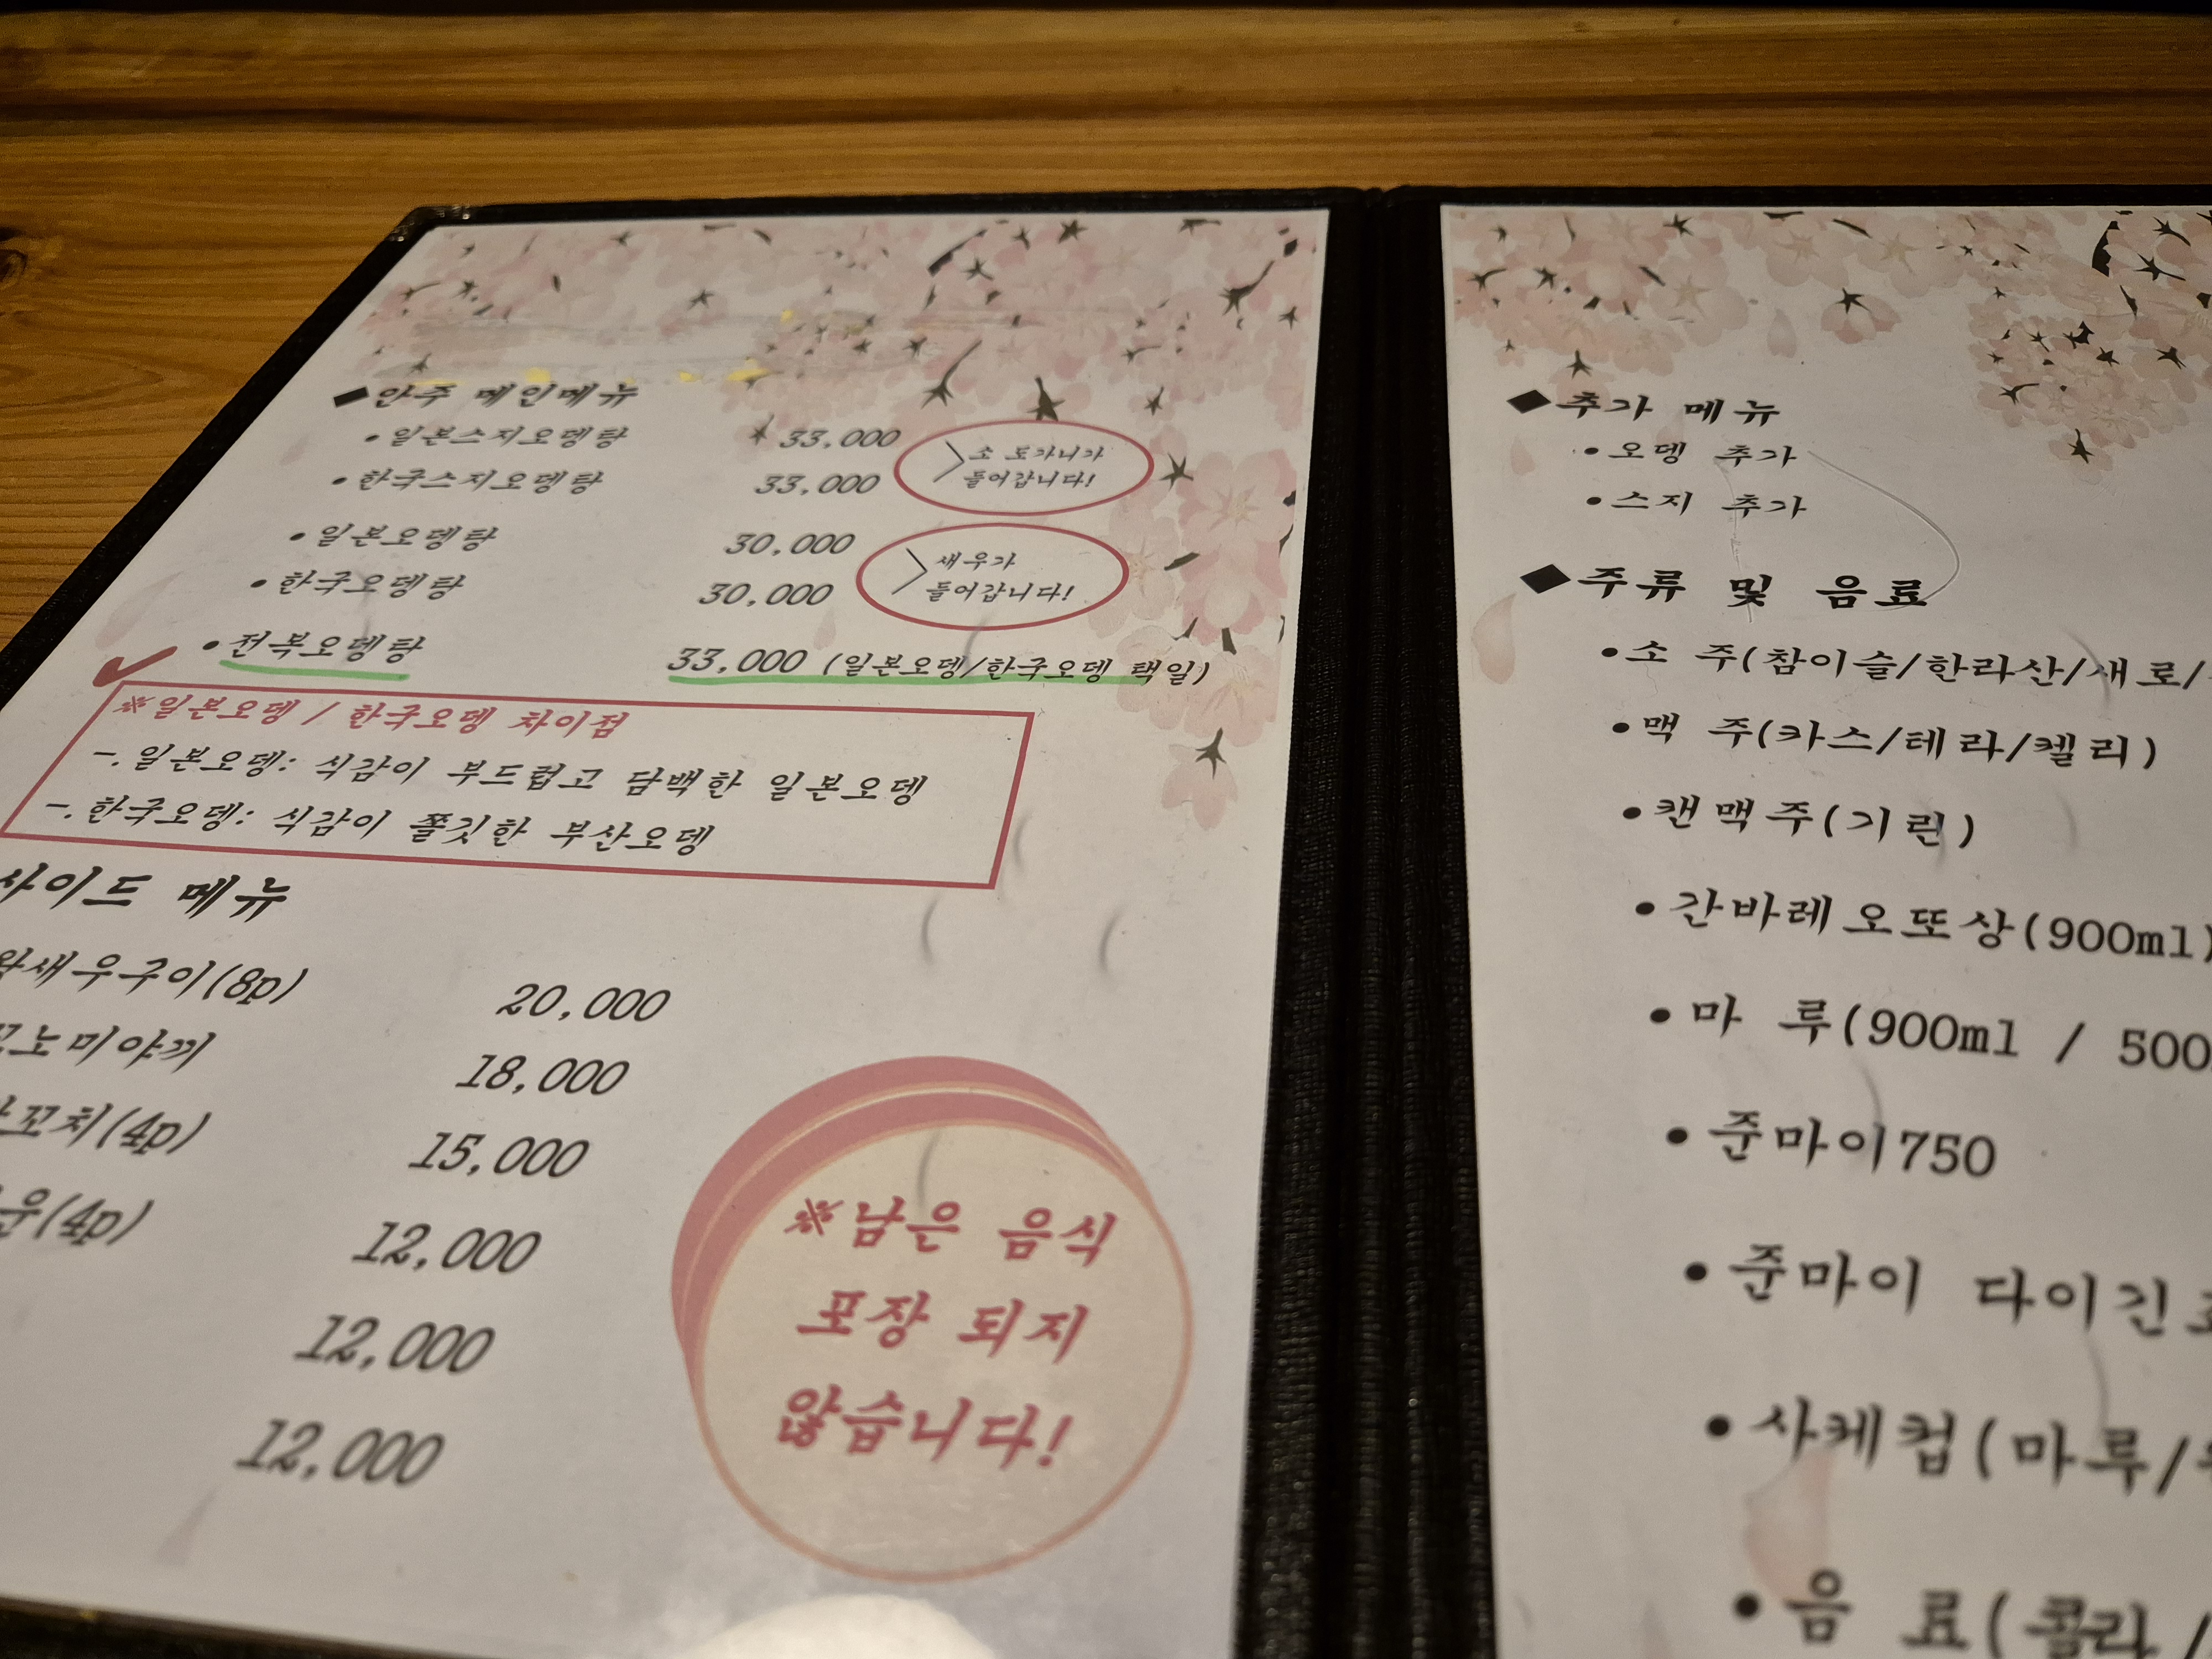 ◆안주 메인메뉴
•일본스지오뎅탕 33,000
•한국스지오뎅탕 33,000
소 도가니가
들어갑니다!
•일본오뎅탕 30,000
•한국오뎅탕 30,000
새우가
들어갑니다!
•전복오뎅탕 33,000 (일본오뎅/한국오뎅 택일)
※일본오뎅/한국오뎅 차이점
-.일본오뎅: 식감이 부드럽고 담백한 일본오뎅
-.한국오뎅: 식감이 쫄깃한 부산오뎅
사이드 메뉴
왕새우구이(8p) 20,000
노미야끼 18,000
꼬치(4p) 15,000
(4p) 12,000
12,000
12,000
※남은 음식
포장 되지
않습니다!
◆추가 메뉴
•오뎅 추가
•스지 추가
◆주류 및 음료
•소 주(참이슬/한라산/새로/
•맥 주(카스/테라/켈리)
•캔맥주(기린)
•간바레오또상(900ml)
•마 루(900ml / 500
•준마이750
•준마이 다이긴
•사케컵(마루/
•음 료(콜라/